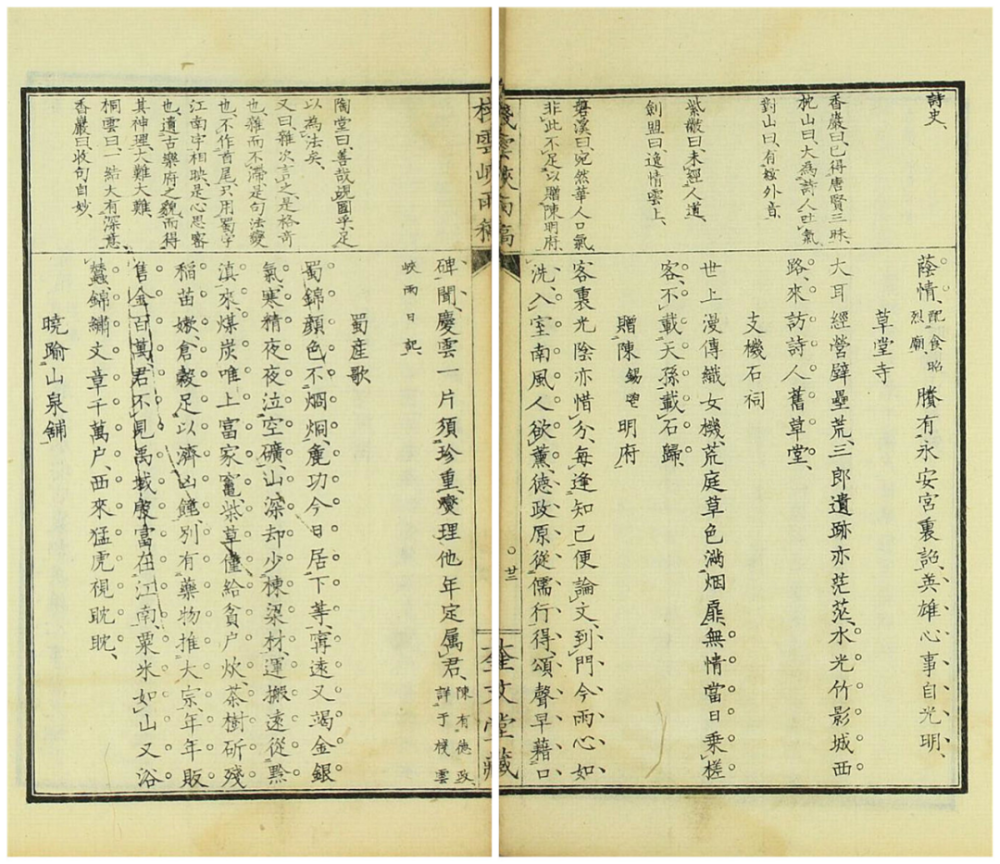 詩史、
香巖曰、已得唐賢三昧、
枕山曰、大爲詩人吐氣
對山曰、有絃外音、
紫瀲曰、未經人道、
劍盟曰、逸情雲上、
磐溪曰、宛然華人口氣
非此不足以贈陳明府、
蔭情、配食昭烈廟、賸有永安宮裏詔、英雄心事自光明、
草堂寺
大耳經營壁壘荒、三郎遺跡亦茫茫、水光竹影城西
路、來訪詩人舊草堂、
支機石祠
世上漫傳織女機、荒庭草色滿烟扉、無情當日乘槎
客、不載天孫載石歸、
贈陳錫鬯明府
客裏光陰亦惜分、每逢知己便論文、到門今雨心如
洗、入室南風人欲薰、德政原從儒行得、頌聲早藉口
棧雲峽雨稿
廿二
奎文堂藏
陶堂曰、善哉覘國乎、足
以為法矣
又曰、雜次言之、是格奇
也、雜而不滯是句法變
也、不作首尾只用蜀字
江南字相映、是心思密
也、遺古樂府之貌而得
其神理、大難大難、
桐雲曰、一結大有深意、
香巖曰、收句自妙、
碑聞、慶雲一片須珍重、燮理他年定属君、陳有德政、詳于棧雲
峽雨日記、
蜀産歌
蜀錦顔色不烱烱、麁功今日居下等、寗遠又竭金銀
氣、寒精夜夜泣空礦、山深却少棟梁材、運搬遠從黔
滇來、煤炭唯上富家竈、柴草僅給貧戸炊、茶樹斫殘
稻苗嫩、倉穀足以濟凶饉、別有藥物推大宗、年年販
售金百萬、君不見禹域殷富在江南、粟米如山又浴
蠶、錦繡文章千萬户、西來猛虎視眈眈、
曉踰山泉舖